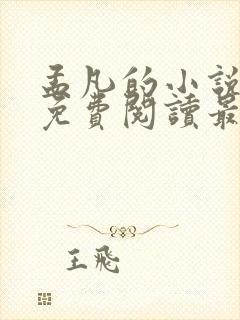 孟凡的小說
免費閱讀最
王飛